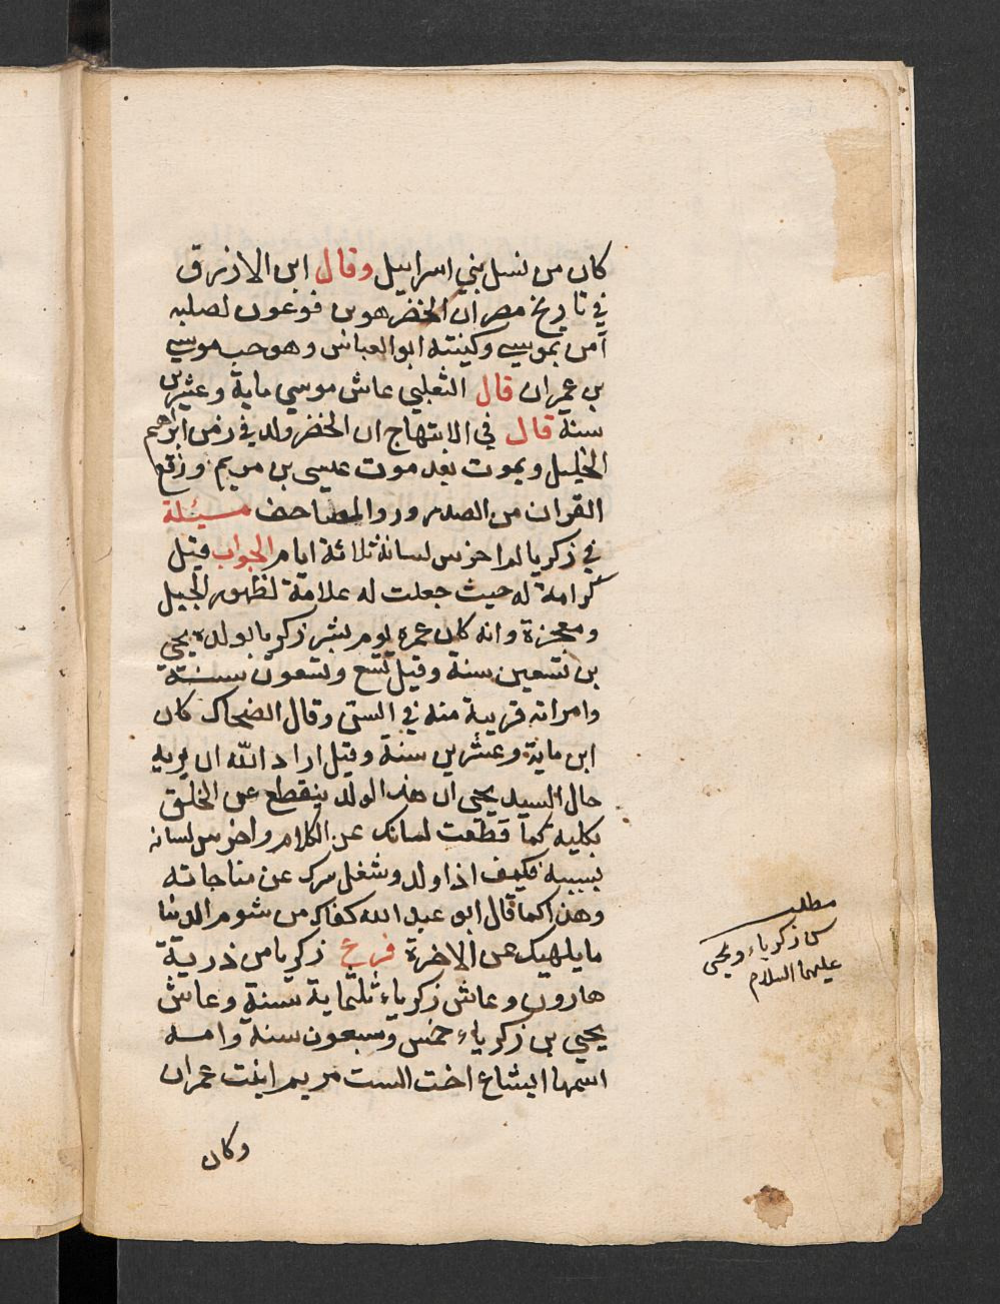 كان من نسل بني اسراييل وقال ابن الازرق
في تاريخ مصر ان الخضر هو بن فرعون لصلبه
آمن بموسي وكينته ابو العباس وهو حب موسي
بن عمران قال الثعلبي عاش موسي ماية وعشرين
سنة قال في الابتهاج ان الخضر ولد في زمن ابراهيم
الخليل ويموت بعد موت عيسى بن مريم ورفع
القران من الصدور والمصاحف مسيئلة
في زكريا لم اخرس لسانه ثلاثة ايام الجواب قيل
كرامة له حيث جعلت له علامة لظهور الجيل
ومعجزة وانه كان عمره يوم بشر زكريا بولده يحيي
بن تسعين سنة وقيل تسع وتسعون سنة
وامراته قريبة منه في السن وقال الضحاك كان
ابن ماية وعشرين سنة وقيل اراد الله ان يريه
حال السيد يحيى ان هذا الولد ينقطع عن الخلق
بكليه كما قطعت لسانك عن الكلام واخرس لسانه
بسببه فكيف اذا ولد وشغل سرك عن مناجاته
وهذا كما قال ابو عبد الله كفاك من شوم الدنيا
ما يلهيك عن الاخرة فرع زكريا من ذرية
هارون وعاش زكرياء ثلثماية سنة وعاش
يحيى بن زكرياء خمس وسبعون سنة وامه
اسمها ايشاع اخت الست مريم ابنت عمران
وكان
مطلب
س زكرياء ويحيى
عليهما السلام